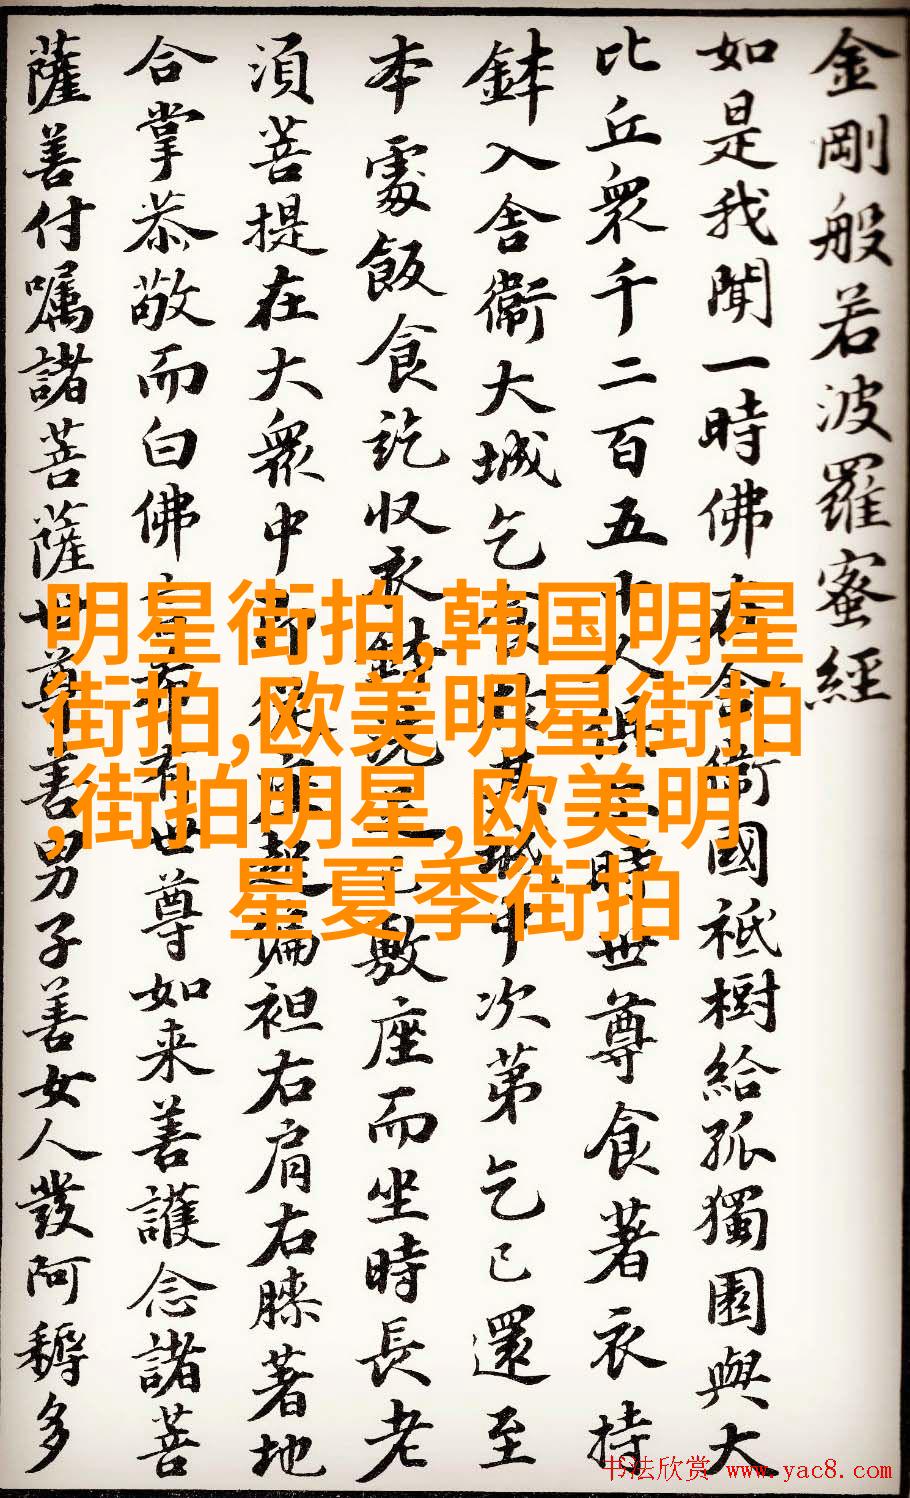 金剛般若波羅蜜經
如是我聞一時佛在舍衛國祇樹給孤獨園與大
比丘衆千二百五十人俱尒時世尊食著衣持
鉢入舍衛大城乞食於其城中次第乞已還至
本處飯食訖收衣鉢洗足已敷座而坐時長老
須菩提在大衆中即從座起偏袒右肩右膝著地
合掌恭敬而白佛言希有世尊如来善護念諸菩
薩善付嘱諸菩薩世尊善男子善女人發阿耨多
明星街拍,韩国明星
街拍,欧美明星街拍
,街拍明星,欧美明
星夏季街拍
书法欣赏 www.yac8.com